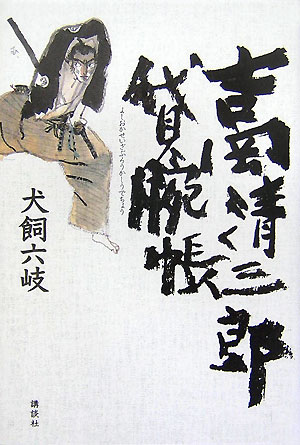 吉岡清三郎
貸腕帳
よしおかせいざぶろうかしうでちょう
犬飼六岐
講談社